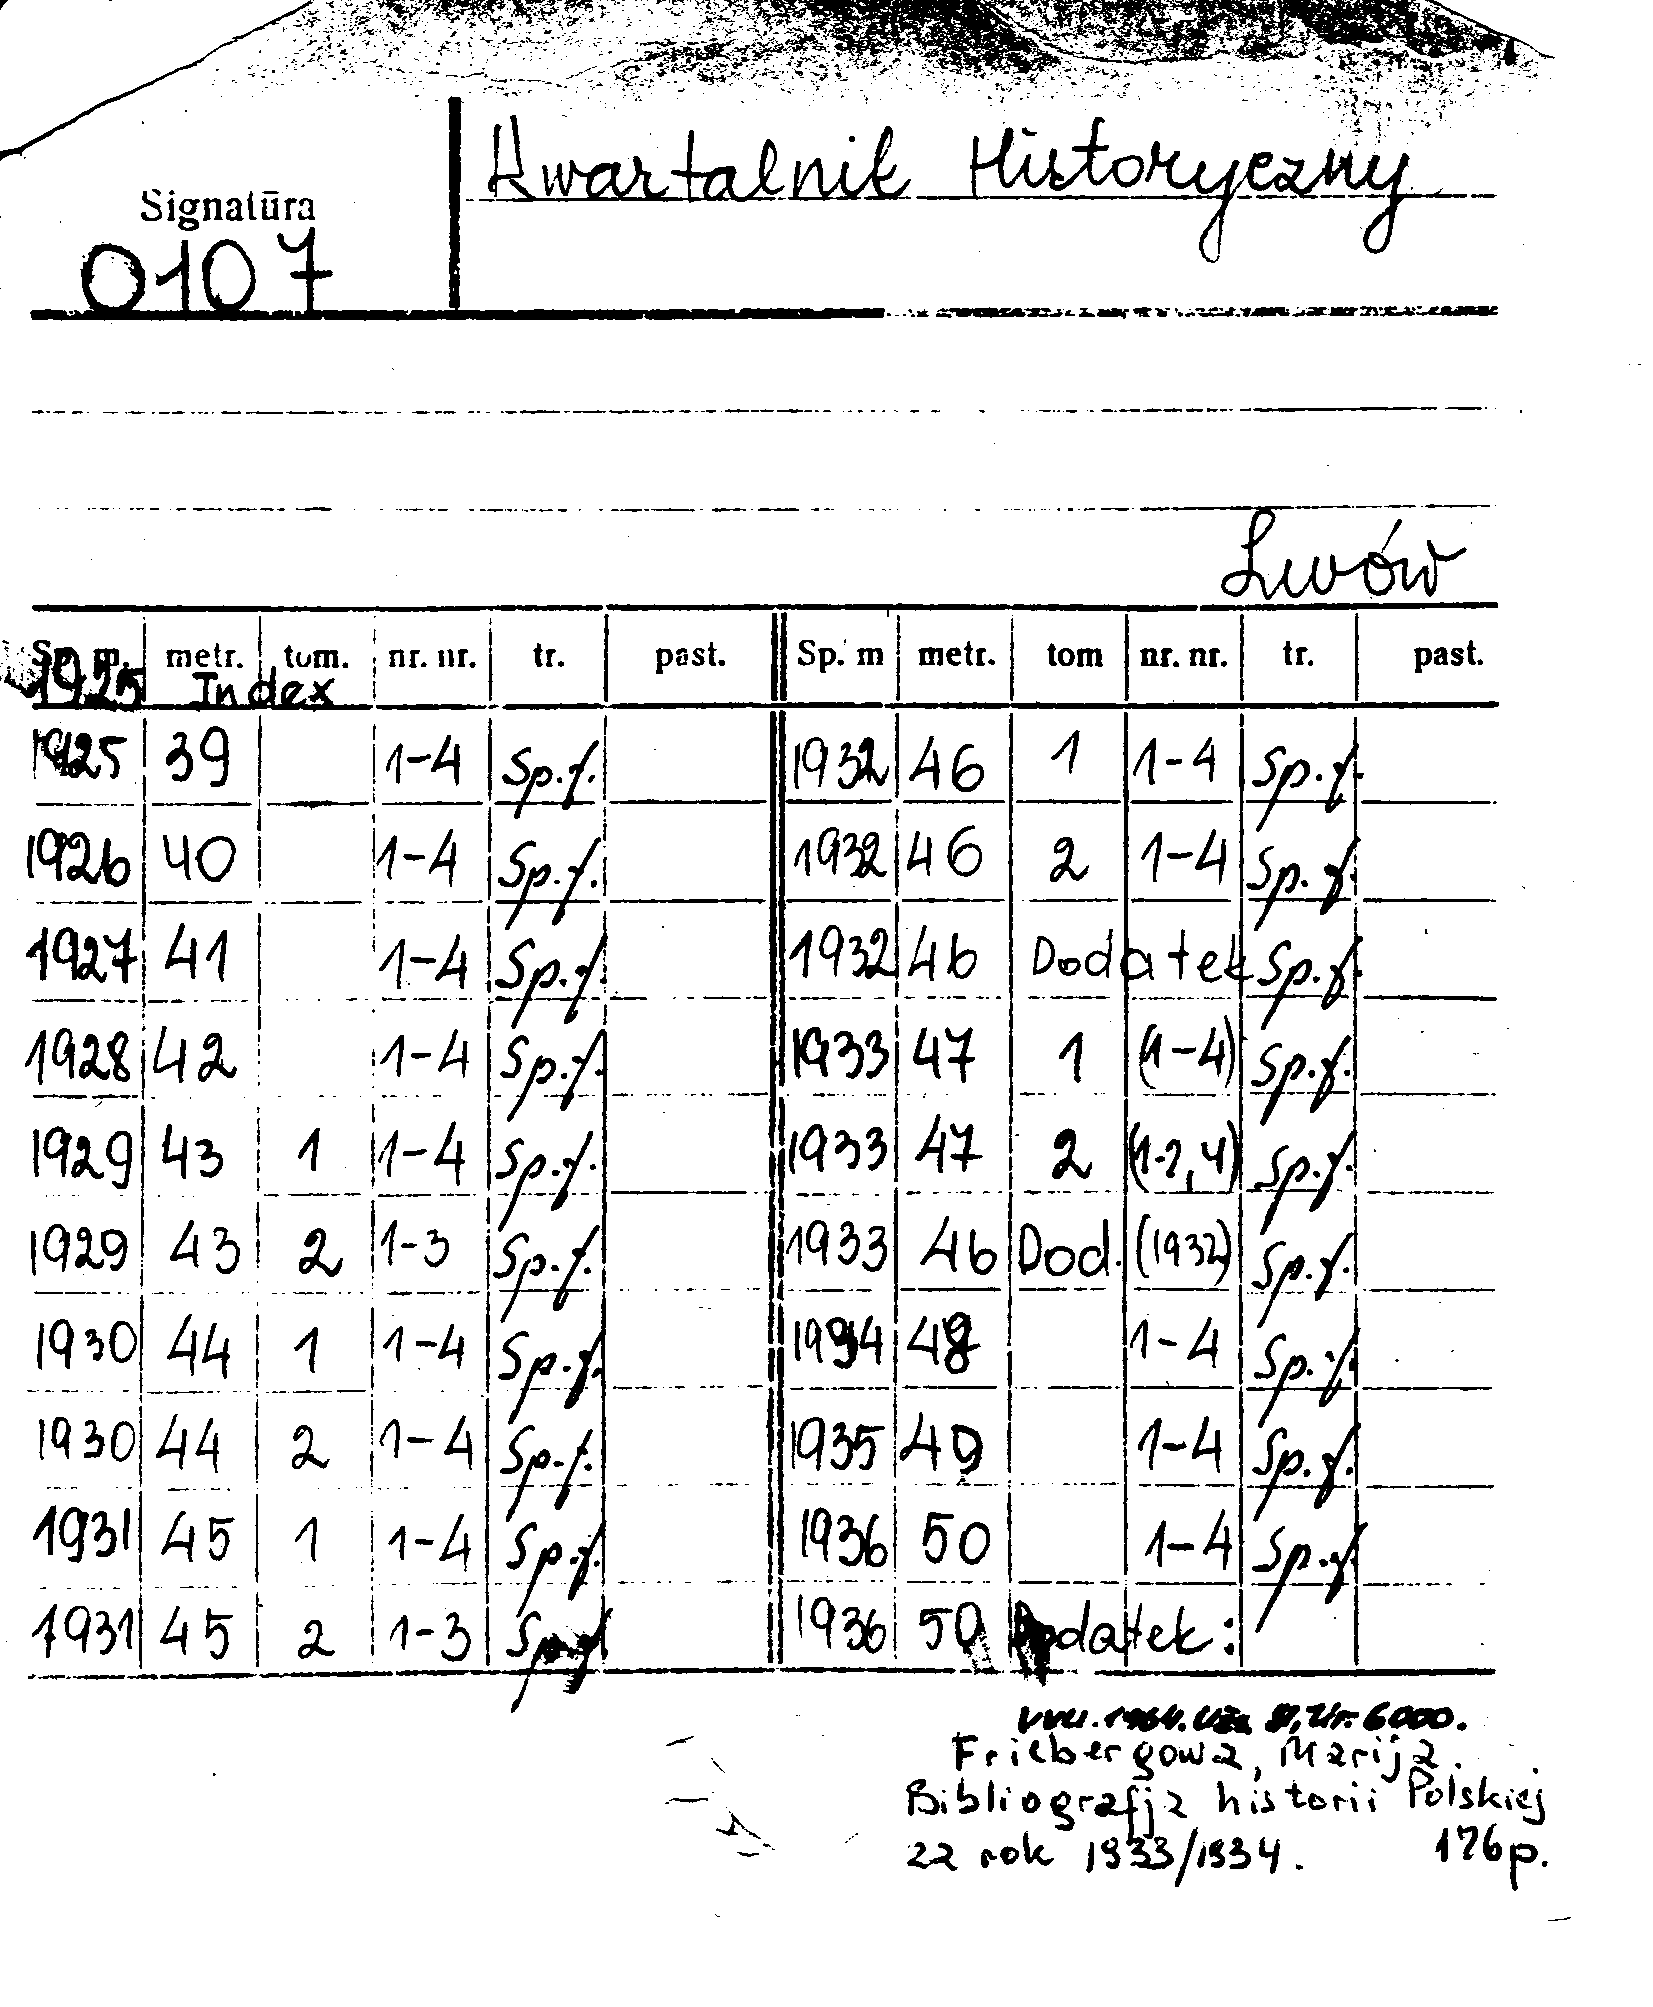 Kwartalnik Historyczny
Signatūra
0107
Lwów
Sp. m. metr. tom. nr. nr. tr. past. Sp. m metr. tom nr. nr. tr. past.
1925 Index
1925 39 1-4 Sp.f. 1932 46 1 1-4 Sp.f.
1926 40 1-4 Sp.f. 1932 46 2 1-4 Sp.f.
1927 41 1-4 Sp.f. 1932 46 Dodatek Sp.f.
1928 42 1-4 Sp.f. 1933 47 1 (1-4) Sp.f.
1929 43 1 1-4 Sp.f. 1933 47 2 (1-2,4) Sp.f.
1929 43 2 1-3 Sp.f. 1933 46 Dod. (1932) Sp.f.
1930 44 1 1-4 Sp.f. 1934 48 1-4 Sp.f.
1930 44 2 1-4 Sp.f. 1935 49 1-4 Sp.f.
1931 45 1 1-4 Sp.f. 1936 50 1-4 Sp.f
1931 45 2 1-3 Sp.f 1936 50 Dodatek:
6000.
Friebergowa, Marija.
Bibliografja historii Polskiej
22 rok 1933/1934. 176p.